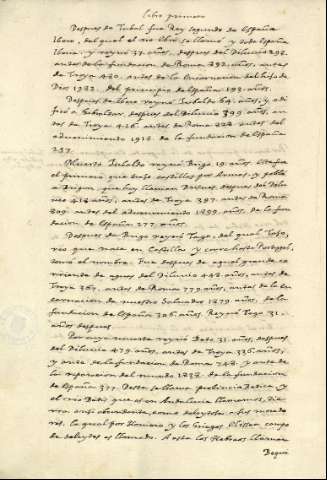 libro primero
Despues de Tubal fue Rey segundo de España
Ibero, del qual el rio Ibero se llamó y toda España
Iberia: y reynó 37. años, despues del Diluvio 292.
antes de la fundacion de Roma 892. años, antes
de Troya 480. antes de la Encarnacion del hijo de
Dios 1982. del principio de España 193. años.
Despues de Ibero reynó Jubalda 64. años, y
despues del Diluvio 399 años, an
tes de Troya 416. antes de Roma antes del
advenimiento 1918. de la fundacion de España
257.
Muerto Jubalda reynó Brigo 19. años. Este fue
el primero que castillos por Armas, y
que hoy llaman despues del Dilu
vio 414 años, antes de Troya 397. antes de Roma
809. antes del advenimiento 1899. años, de la fun
dacion de España 277. años.
Despues de Brigo reynó Tago, del qual Tajo,
rio que nace en Castilla y corre hasta Portugal,
tomó el nombre. Fue despues de aquel grande
de aguas del Diluvio 442. años, antes de
Troya 367. antes de Roma 779 años, antes de la en
carnacion de nuestro Salvador 1879 años, de la
fundacion de España 306. años. Reynó Tago 31.
años despues.
reynó Beto 31. años, despues
del Diluvio 479. años, antes de Troya 336. años,
y antes de la fundacion de Roma 748. y antes de
la reparacion del mundo 1838. de la fundacion
de España 337. Deste se llama provincia Betica, y
el rio Betis que es en Andalucia llamamos, tie
rra muy abundante, como deleytosa a sus morado
res, la qual por Homero y los Griegos Elisios campos
de deleytes es llamada. A esta los Hebreos llaman